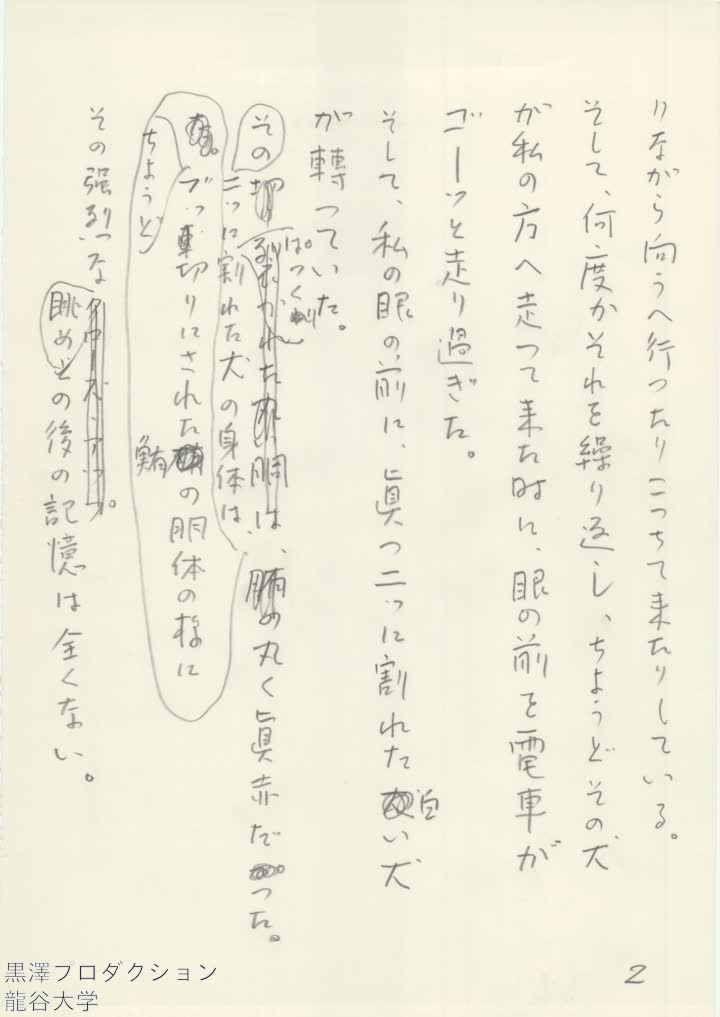 りながら向うへ行つたりこつちて来たりしている。
そして、何度かそれを繰り返し、ちようどその犬
が私の方へ走つて来た時に、眼の前を電車が
ゴーッと走り過ぎた。
そして、私の眼の前に、眞つ二つに割れた白い犬
が轉つていた。
その
二つに割れた犬の身体は、
丸く眞赤だつた。
ちようど
ブツ切りにされた鮪の胴体の様に
その強烈な
眺めとの後の記憶は全くない。
2
黒澤プロダクション
龍谷大学